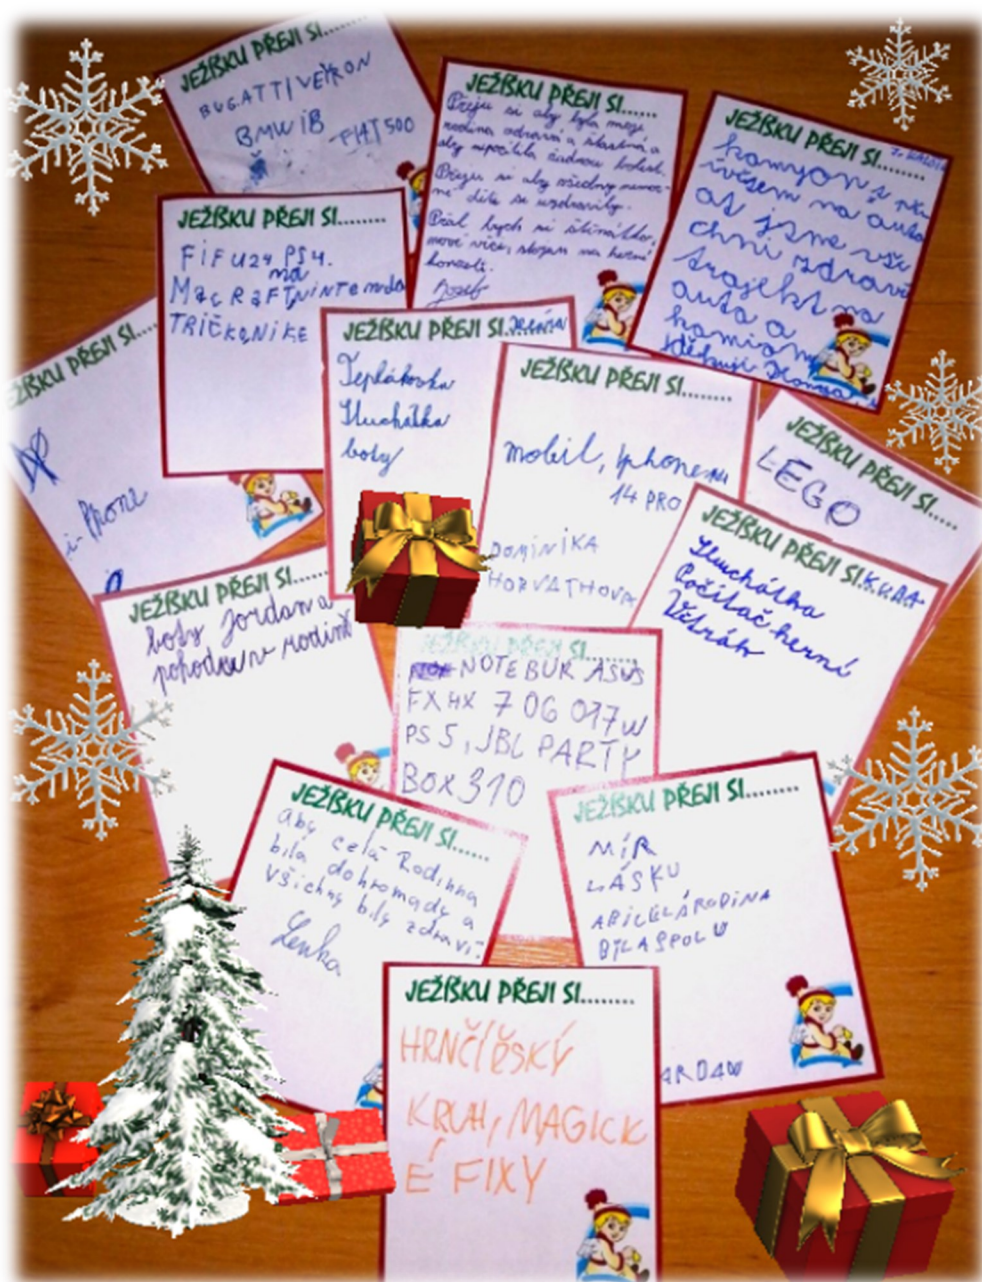 JEŽÍŠKU PŘEJI SI......
BUGATTI VEYRON
BMW i8
FIAT 500
JEŽÍŠKU PŘEJI SI......
Přeju si aby byla moje
rodina zdravá a šťastná a
aby nepocítila žádnou bolest.
Přeju si aby všechny nemoc-
né děti se uzdravily.
Přál bych si štěňátko,
nové věci, stojan na herní
konzoli.
Jozef
JEŽÍŠKU PŘEJI SI........
kamyon s
věsem na auta
at jsme vši
chni zdravi
trajekt na
auta a
kamion
děkuji
JEŽÍŠKU PŘEJI SI........
FiFu24 PS4.
na
MacRaFTniNTendo
TRiČKoNiKE
JEŽÍŠKU PŘEJI SI
i-Phone
JEŽÍŠKU PŘEJI SI
Tepláková
Sluchátka
boty
JEŽÍŠKU PŘEJI SI........
mobil, iphone
14 PRO
DOMINIKA
HORVATHOVA
JEŽÍŠKU PŘEJI SI......
LEGO
JEŽÍŠKU PŘEJI SI......
boty Jordan a
pohodu v rodině
JEŽÍŠKU PŘEJI SI
Sluchátka
Počítač herní
Větrák
JEŽÍŠKU PŘEJI SI........
NOTEBUK ASUS
FX HX 7 06 017W
PS5, JBL PARTY
BOX 310
JEŽÍŠKU PŘEJI SI......
aby celá Rodinna
bila dohromady a
všichny bily zdraví.
Lenka
JEŽÍŠKU PŘEJI SI........
MÍR
LÁSKU
ABICELÁRODINA
BYLASPOLU
ARDAN
JEŽÍŠKU PŘEJI SI........
HRNČÍŘSKÝ
KRUH, MAGICK
É FIXY